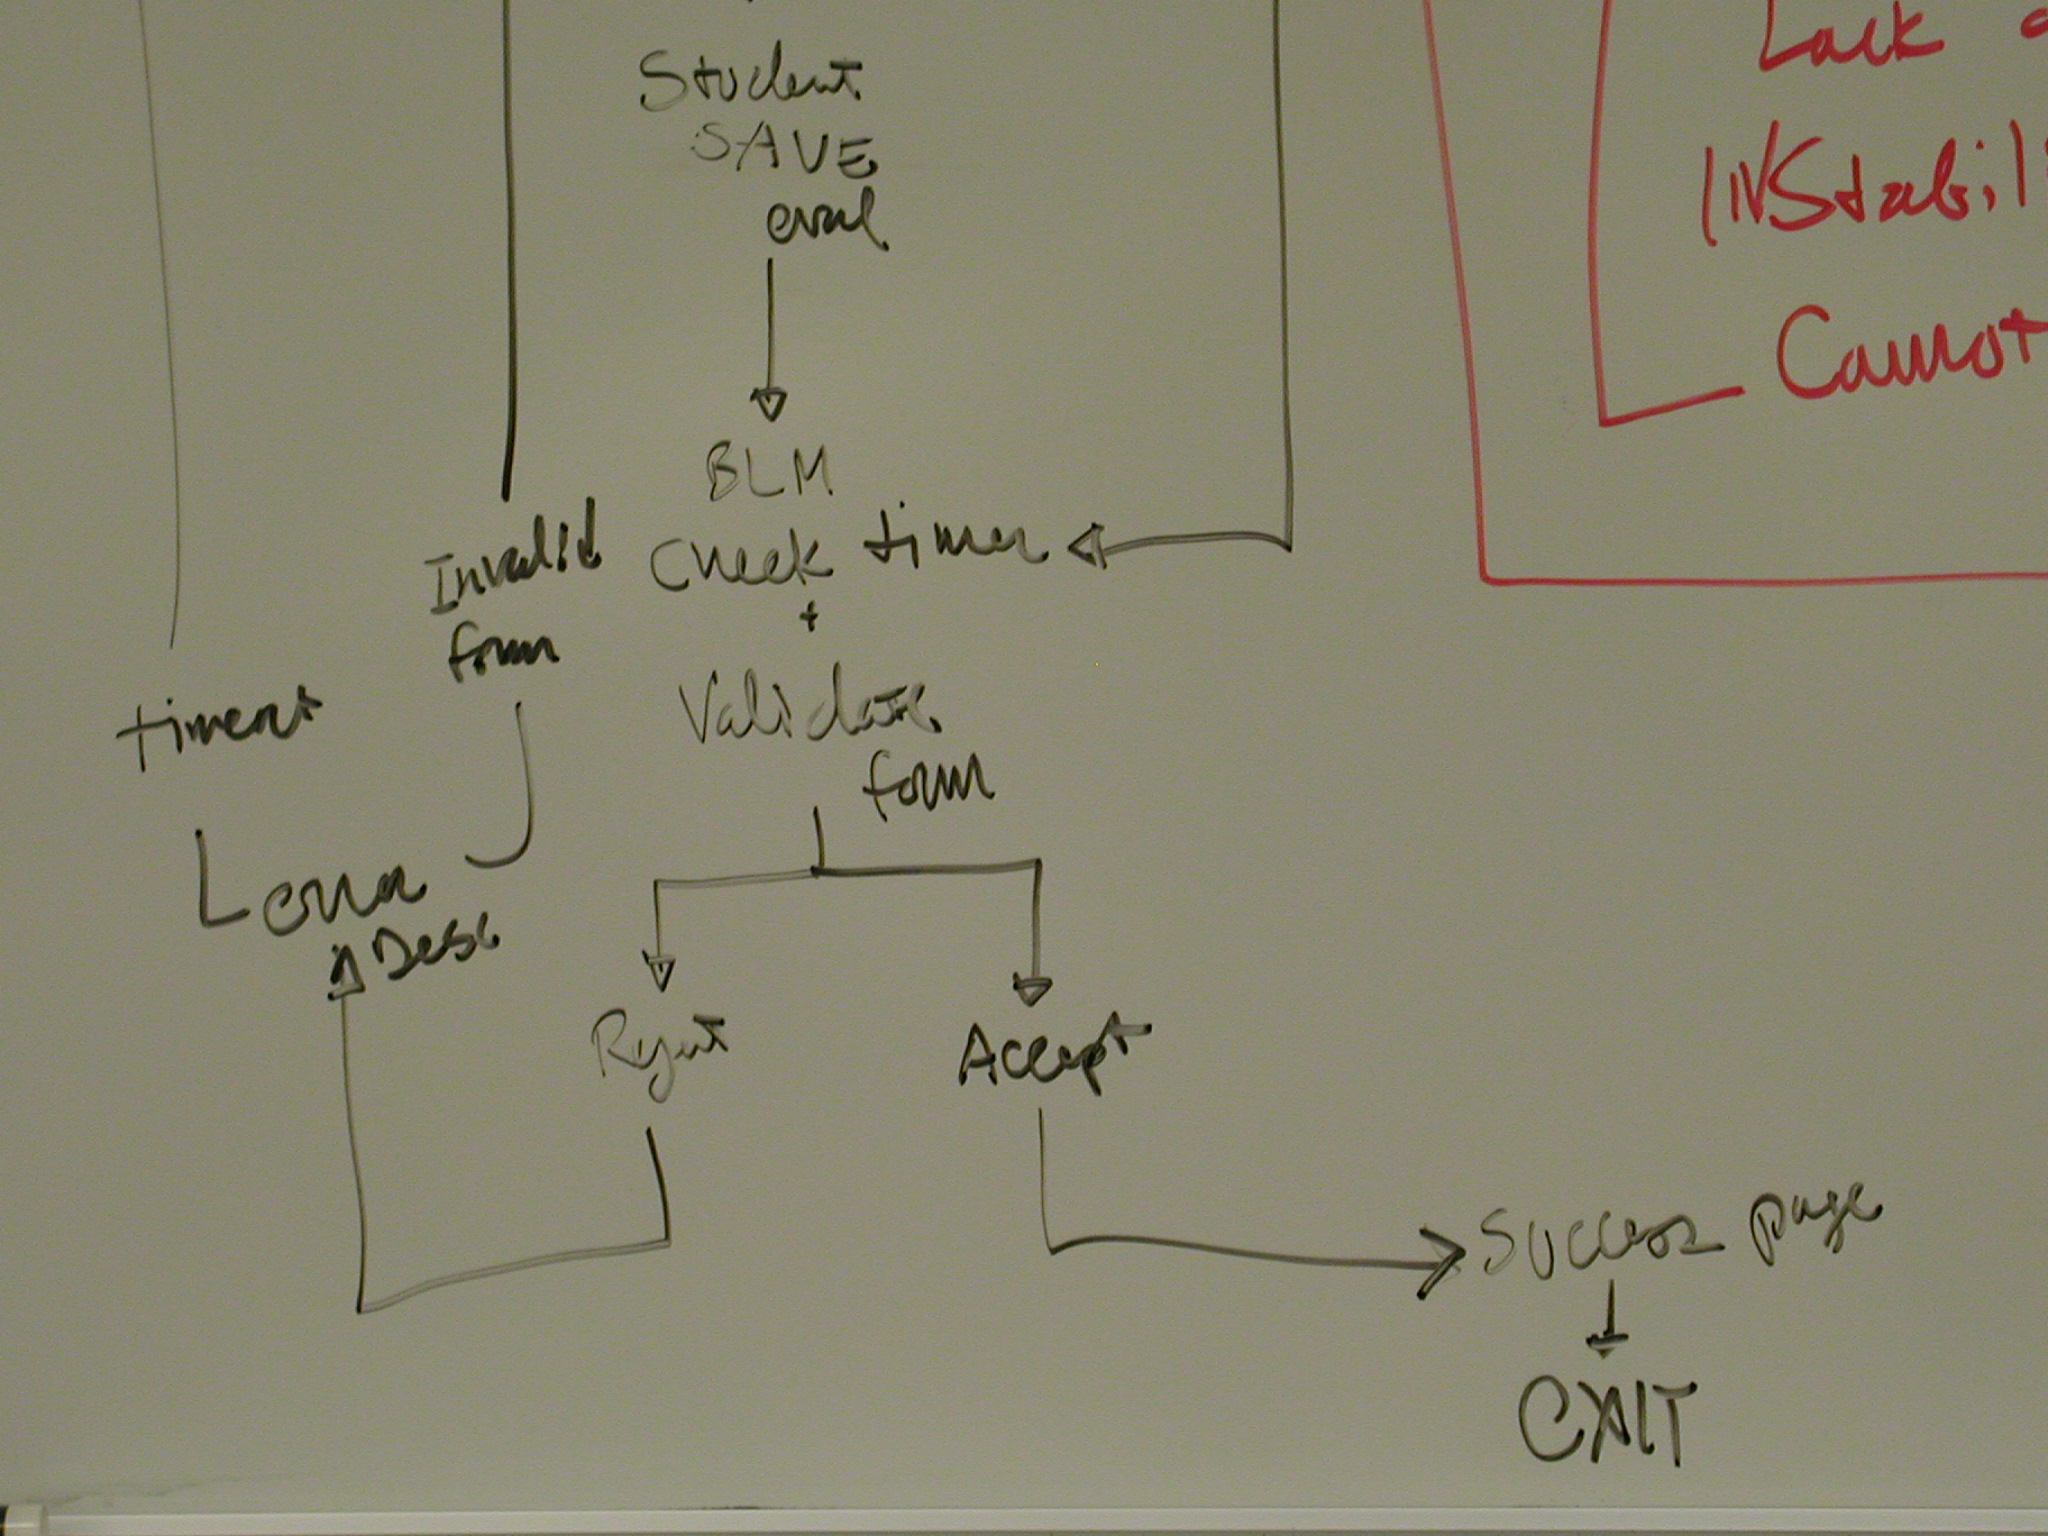 Student
SAVE
eval
BLM
Check timer
+
Validate
form
Invalid
form
timeout
error
Desc
Reject
Accept
Success page
EXIT
Lack
INStabili
Cannot